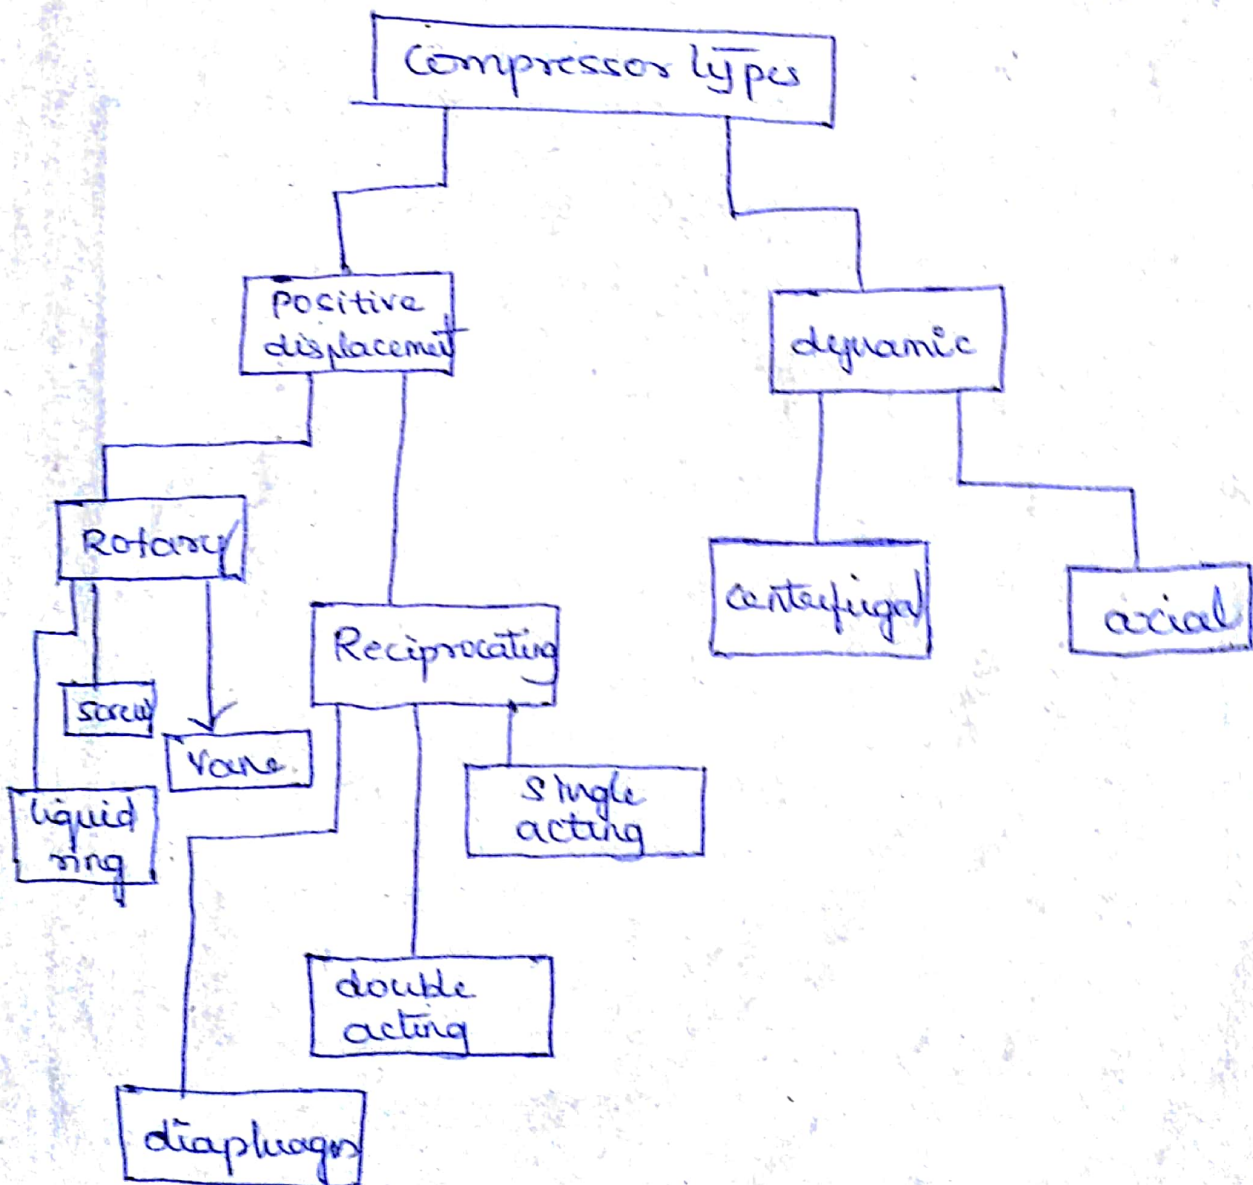 Compressor types
Positive
displacement
dynamic
Rotary
Reciprocating
centrifugal
axial
screw
Vane
liquid
ring
single
acting
double
acting
diaphragm